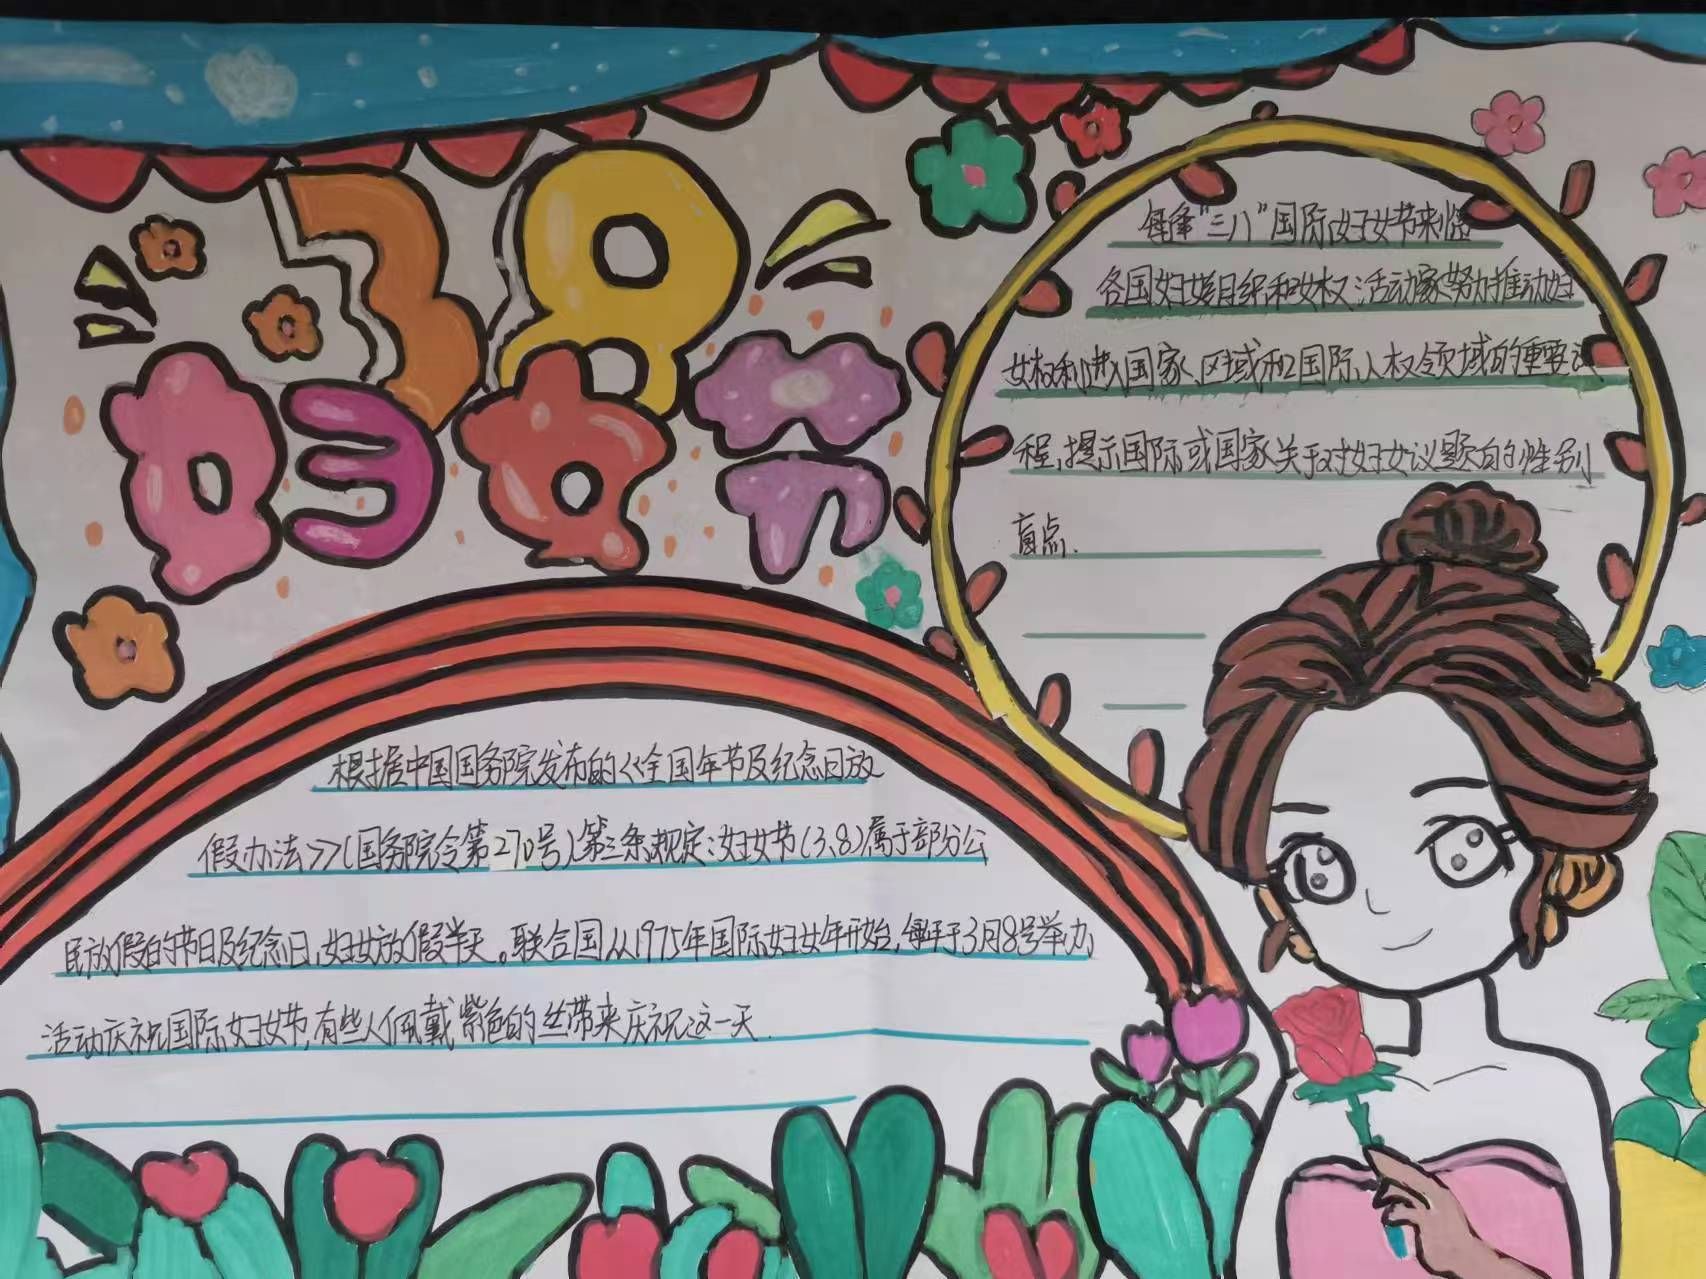 38
妇女节
每年“三八”国际妇女节来临
各国妇女组织和女权活动家努力推动妇
女权利进入国家、区域和国际人权领域的重要议
程,提示国际或国家关于对妇女议题的性别
盲点.
根据中国国务院发布的《全国年节及纪念日放
假办法》(国务院令第270号)第三条规定:妇女节(3.8)属于部分公
民放假的节日及纪念日,妇女放假半天。联合国从1975年国际妇女年开始,每年于3月8号举办
活动庆祝国际妇女节,有些人佩戴紫色的丝带来庆祝这一天.